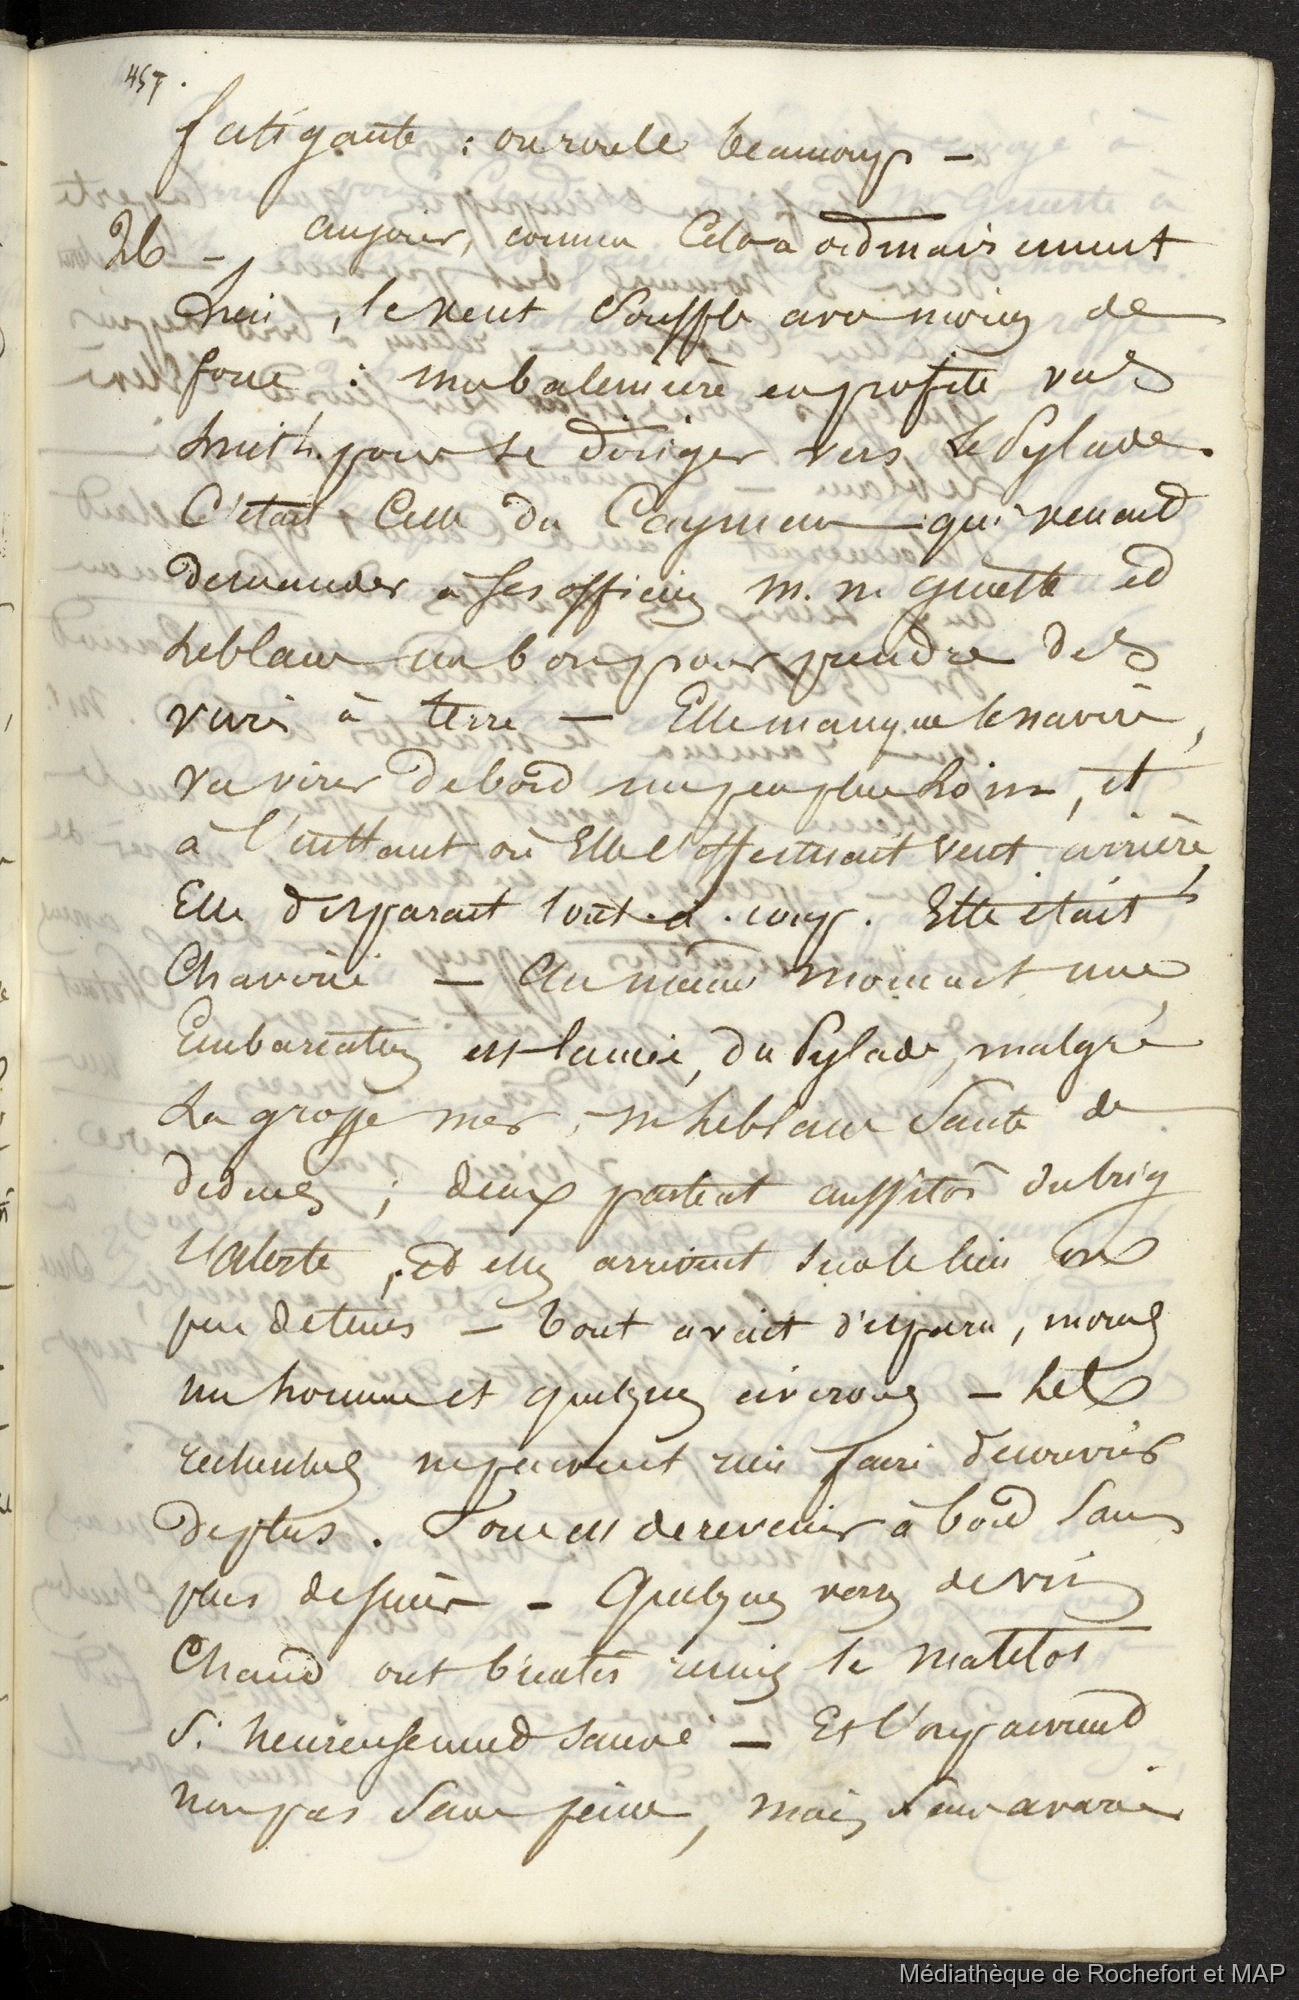 457.
fatigante : on roule beaucoup –
26 – Au jour, comme cela a ordinairement
lieu, le vent souffle avec moins de
force : une baleinière en profite
pour se diriger vers le Pylade.
C'était celle du Caÿman qui venait
demander à ses officiers M. M. Guette et
Leblanc un bon pour prendre des
vivres à terre – Elle manque le navire,
va virer de bord un peu plus loin, et
à l'instant où elle l'effectuait vent arrière,
Elle disparait tout-à-coup. Elle était
Chavirée – Au même moment une
Embarcation est lancée, du Pylade, malgré
La grosse mer, M Leblanc saute
dedans ; deux partent aussitôt du brig
l'Alerte, et elles arrivent sur le lieu en
peu de tems – Tout avait disparu, moins
un homme et quelques avirons – Les
recherches ne peuvent rien faire découvrir
de plus. Force est de revenir à bord sans
plus de succès – Quelques verres de vin
Chaud ont bientôt remis le matelot
si heureusement sauvé – Et l'on parvient
non pas sans peine, mais sans avarie
Médiathèque de Rochefort et MAP